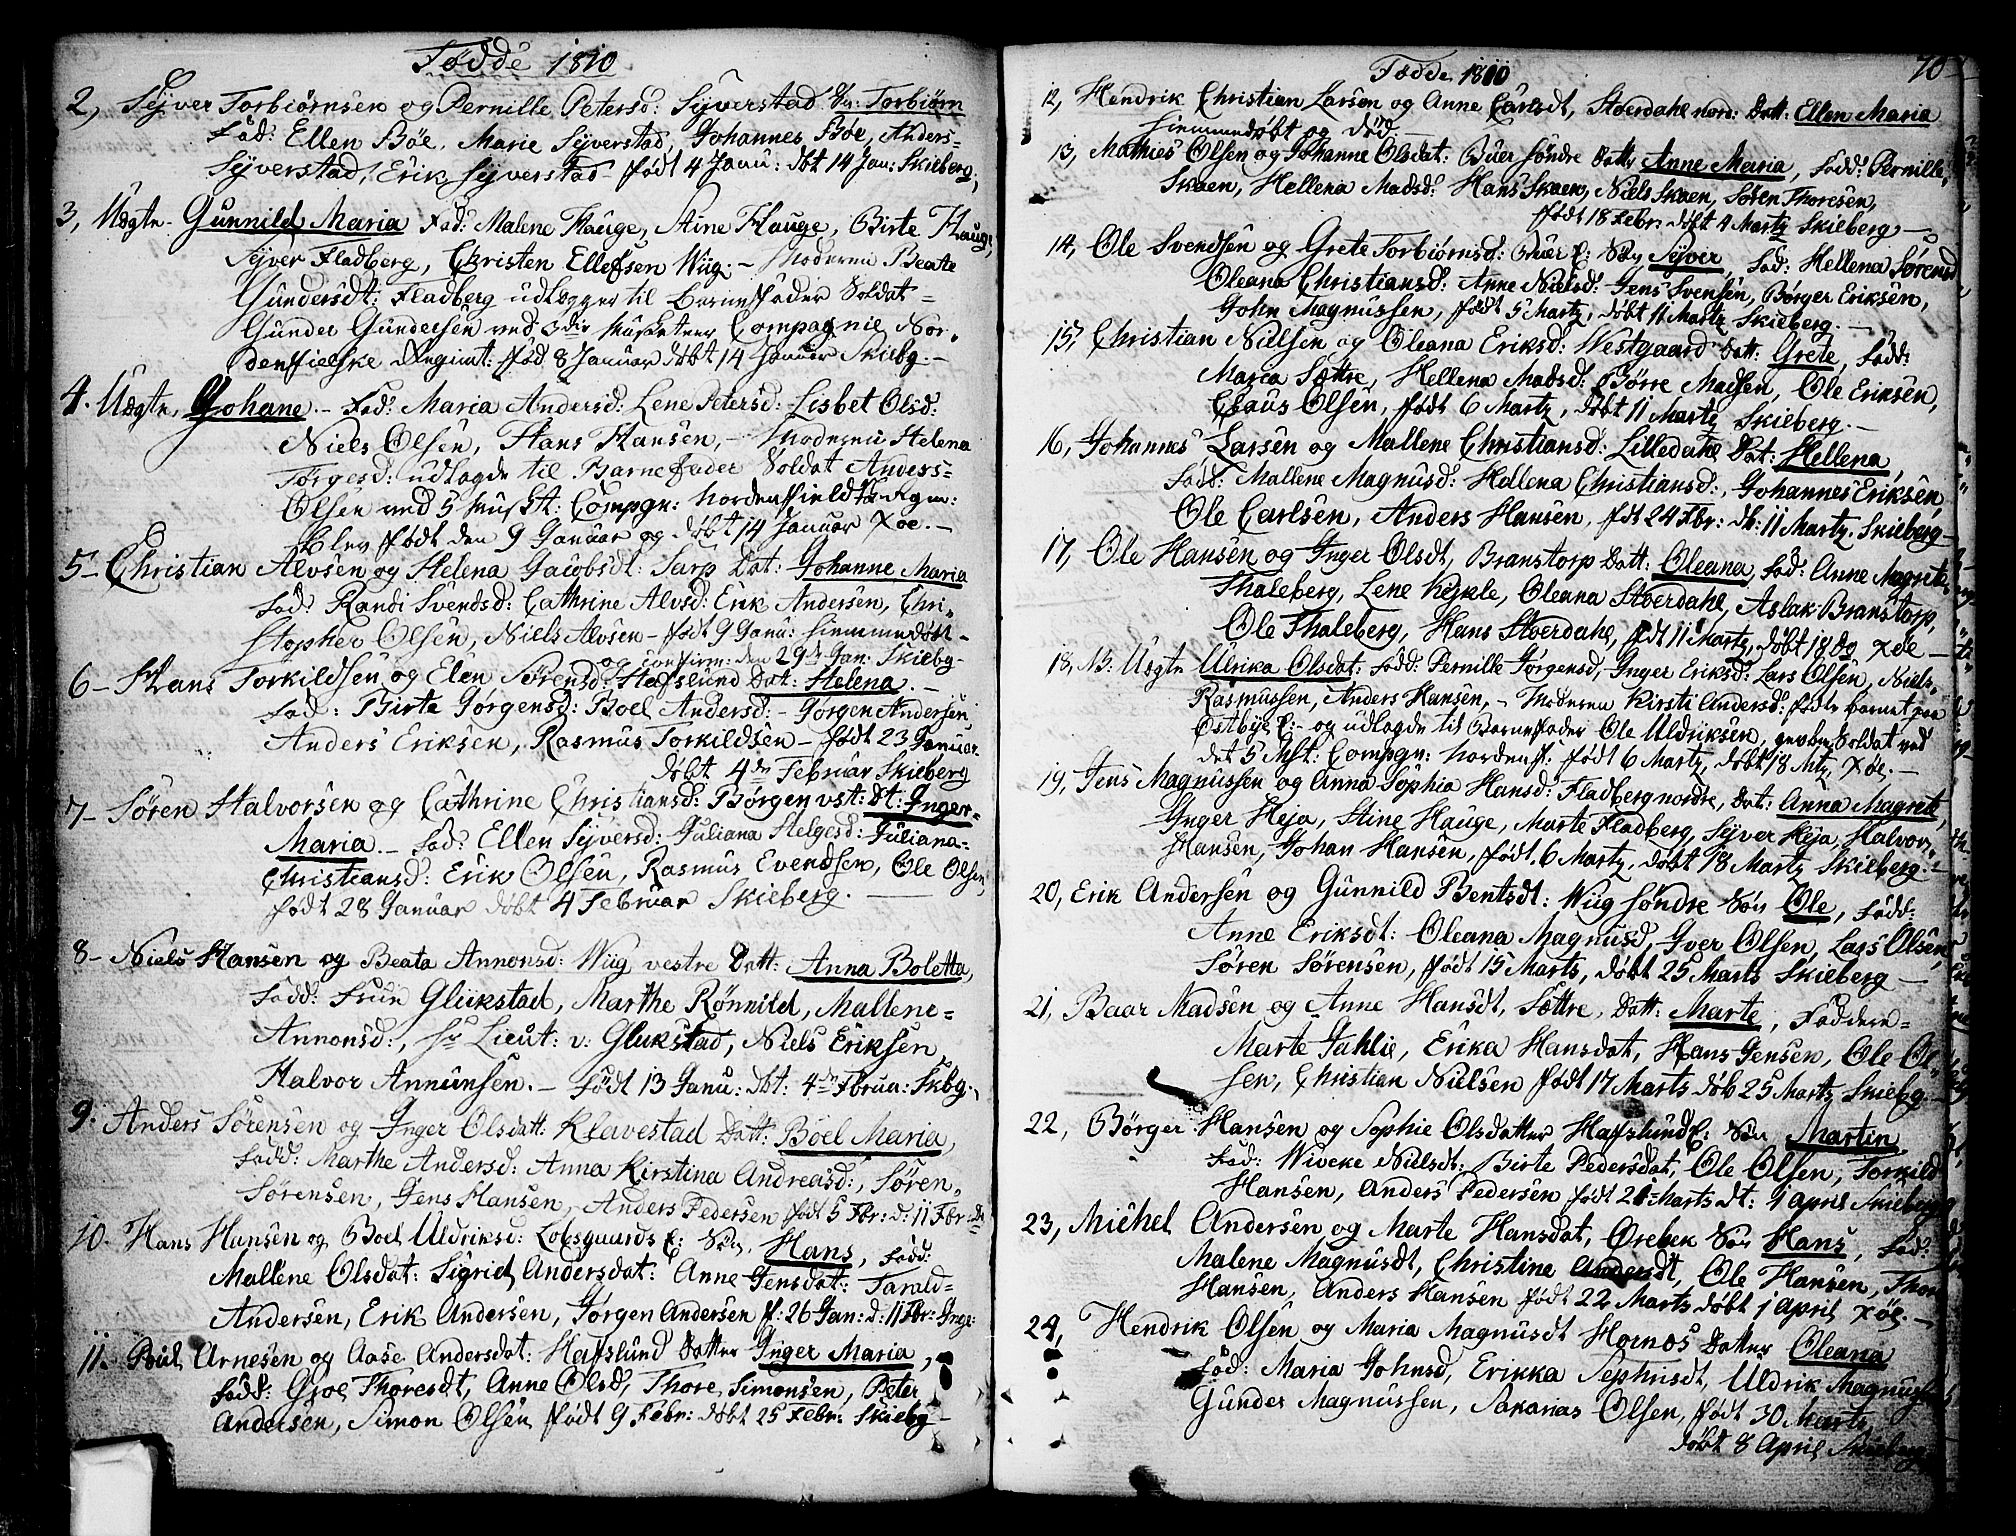 Fødde 1810
2, Syver Torbiørnsen og Pernille Petersd: Syverstad S: Torbiørn
Fad: Ellen Bøe, Marie Syverstad, Johannes Bøe, Anders
Syverstad, Erik Syverstad – født 4 Janu: døbt 14 Jan: Skieberg,
3, Uægte. Gunnild Maria Fad: Malene Hauge, Stine Hauge, Birte Hauge,
Syver Fladberg, Christen Ellefsen Wiig. – Moderen Beate
Gundersdt: Fladberg udlægger til Barnefader Soldat –
Gunder Gundersen ved 3die Musketeer Compagnie Nor-
denfielske Regimt: fød 8 Januar døbt 14 Januar Skiebg. –
4. Uægte, Johane. – Fad: Maria Andersd: Lene Petersd: Lisbet Olsd:
Niels Olsen, Hans Hansen, – Moderen Helena
Jørgesd: udlagde til Barnefader Soldat Anders=
Olsen ved 5 Musqt: Compgn: Nordenfieldske Rgm:
blev født den 9 Januar og døbt 14 Januar Xoe. –
5 – Christian Alvsen og Helena Jacobsdt: Sarp Dat: Johanne Maria
Fad: Randi Svendsd: Cathrine Alvsd: Erik Andersen, Chri-
stopher Olsen, Niels Alvsen – født 9 Janu: hiemmedøbt –
og confirm: den 29de Jan: Skiebg –
6 – Hans Torkildsen og Elen Sørensd: Hafslund Dat: Helena. –
Fad: Birte Jørgensd: Boel Andersd: – Jørgen Andersen
Anders Eriksen, Rasmus Torkildsen – født 23 Januar
døbt 4de Februar Skieberg
7 – Søren Halvorsen og Cathrine Christiansd: Børgen vst: Dt: Inger=
Maria. – Fad: Ellen Syversd: Juliana Helgesd: Juliana=
Christiansd: Erik Olsen, Rasmus Evendsen, Ole Olsen
født 28 Januar døbt 4 Februar Skieberg. –
8 – Niels Hansen og Beata Annonsd: Wiig vestre Datt: Anna Boletta,
Fadd: Frue Glükstad, Marthe Rønnild, Mallene=
Annonsd:, Hr Lieut: v: Glukstad, Niels Eriksen,
Halvor Annunsen. – Født 13 Janu: Dbt: 4de Fbrua: Skbg.
9. Anders Sørensen og Inger Olsdatt: Klavestad Datt: Boel Maria,
Fadd: Marthe Andersd: Anna Kirstina Andreasd:, Søren
Sørensen, Jens Hansen, Anders Pedersen født 5 Fbr: d: 11 Fbr:
10. Hans Hansen og Boel Uldriksd: Lobsgaards E: Søn, Hans, Fadd:
Mallene Olsdat: Sigrid Andersdat: Anne Jensdat: Tarald=
Andersen, Erik Andersen, Jørgen Andersen f: 26 Jan: d: 11 Fbr: Inge:
11. Poul Arnesen og Aase Andersdat: Hafslund Datter Inger Maria,
Fadd: Groe Thoresdt, Anne Olsd, Thore Simonsen, Peter
Andersen, Simon Olsen født 9 Febr: døbt 25 Febr: Skiebg –
Fødde 1810
70
12, Hendrik Christian Larsen og Anne Carlsdt, Stoerdahl nord: Datt: Ellen Maria
hiemmedøbt og død. –
13, Mathies Olsen og Johanne Olsdat: Buer søndre Datt: Anne Maria, Fad: Pernille
Skaen, Hellena Madsd: Hans Skaen, Niels Skaen, Søren Thoresen,
født 18 Febr: døbt 4 Martz Skieberg –
14, Ole Svendsen og Grete Torbiørnsd: Buer E: Søn Syver, Fad: Hellena Sørensd
Oleana Christiansd: Anne Nielsd: Jens Svensen, Børger Eriksen,
John Magnussen, født 5 Martz, døbt 11 Martz Skieberg. –
15, Christian Nielsen og Oleana Eriksd: Westgaard Datt: Grete, Fadd:
Maria Sættre, Hellena Madsd: Børre Madsen, Ole Eriksen,
Claus Olsen, født 6 Martz, døbt 11 Martz Skieberg. –
16, Johannes Larsen og Mallene Christiansd: Lilledahl Dat: Hellena,
Fadd: Mallene Magnusd: Hellena Christiansd:, Johannes Eriksen,
Ole Carlsen, Anders Hansen, født 24 Fbr: db: 11 Martz. Skieberg –
17, Ole Hansen og Inger Olsdt, Branstorp Datt: Oleana, Fad: Anne Magrete
Thaleberg, Lene Kykle, Oleana Stoerdahl, Aslak Branstorp,
Ole Thaleberg, Hans Stoerdahl, født 11 Martz, døbt 18 do Xoe –
18, NB. Uægte Ulrika Olsdat: Fadd: Pernille Jørgensd, Inger Eriksd: Lars Olsen, Niels
Rasmussen, Anders Hansen, – Moderen Kirsti Andersd: fødte barnet paa
Østbye E: – og udlagde til Barnefader Ole Uldriksen, Soldat ved
det 5 Mst. Compgn: Nordenf: født 6 Martz, døbt 18 Mtz Xoe. –
19, Jens Magnussen og Anna Sophia Hansd: Fladberg nordre, Dat: Anna Magrete,
Inger Heja, Stine Hauge, Marte Fladberg, Syver Heja, Halvor
Hansen, Johan Hansen, født 6 Martz, døbt 18 Martz Skieberg. –
20, Erik Andersen og Gunnild Bentsdt: Wiig søndre Søn Ole, Fadd:
Anne Eriksdt: Oleana Magnusd, Iver Olsen, Lars Olsen,
Søren Sørensen, født 15 Marts, døbt 25 Marts Skieberg –
21, Baar Madsen og Anne Hansdt, Sættre, Datt: Marte, Faddere=
Marte Jahlie, Erika Hansdat, Hans Jensen, Ole Ol-
sen, Christian Nielsen født 17 Marts døb 25 Martz Skiebg. –
22, Børger Hansen og Sophie Olsdatter Hafslund E: Søn Martin
Fad: Wiveke Nielsdt: Birte Pedersdat, Ole Olsen, Torkild
Hansen, Anders Pedersen født 21 Marts dt: 1 April Skieberg
23, Michel Andersen og Marte Hansdat, Orebek Søn Hans, Fad:
Malene Magnusdt, Christine Andersdt, Ole Hansen, Thor
Hansen, Anders Hansen født 22 Marts døbt 1 April Xoe. –
24, Hendrik Olsen og Maria Magnusdt Hornes Datter Oleana
Fad: Maria Johnsd, Erikka Sephrisdt, Uldrik Magnussen
Gunder Magnussen, Sakarias Olsen, født 30 Martz
døbt 8 April Skieberg